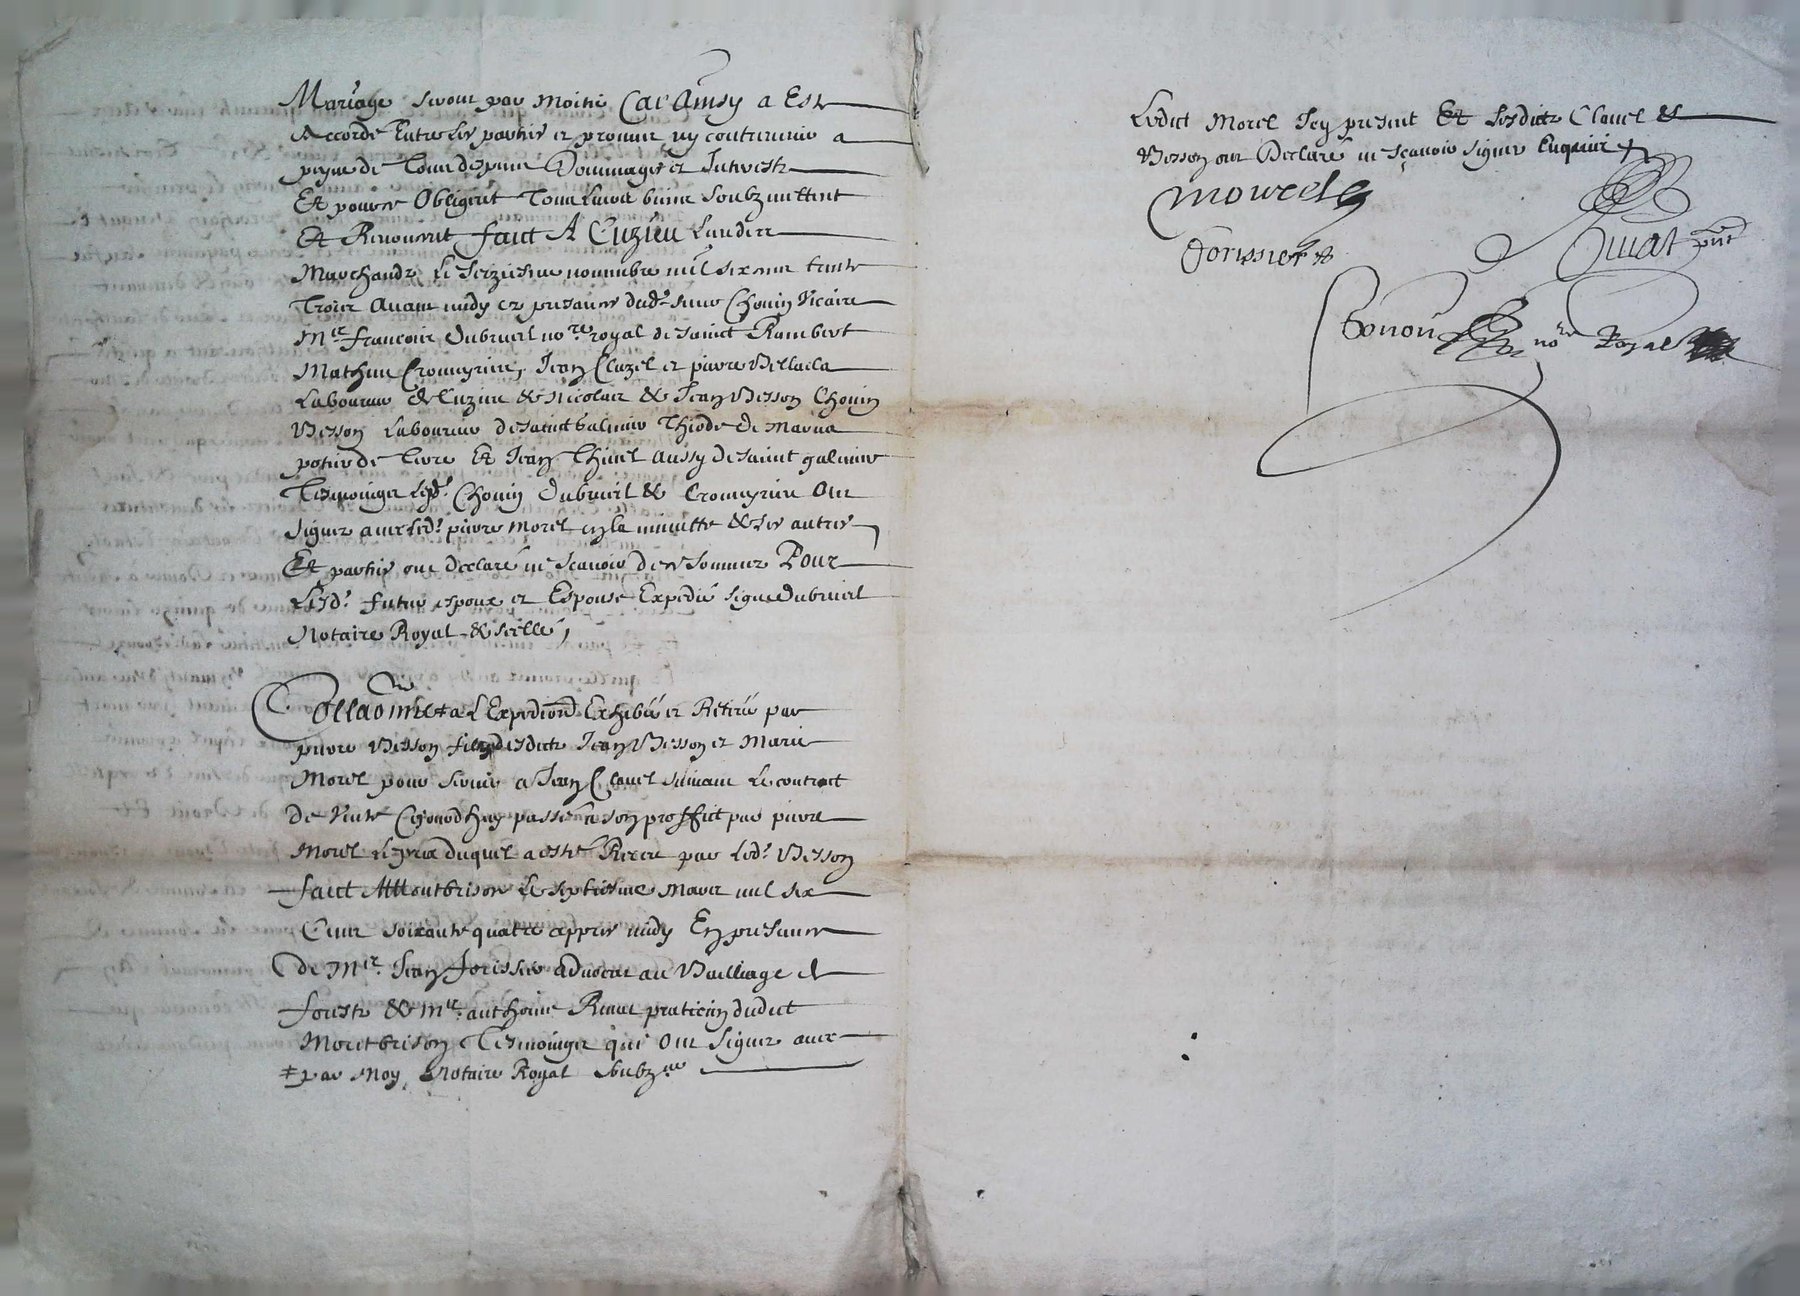 Mariage seront par moitié Car Ainsy a Esté
Accordé Entre les parties et promis ny contrevenir a
peyne de tous despens Dommages et Interestz
Et pour ce Obligent tous leurs biens soubzmettent
Et Renoncent faict A Cuzieu
Marchandz le seziesme novembre mil six cens trente
Trois Avant midy en presance dudt sieur Chovin Vicaire
Mre françois Dubrueil nore royal de sainct Rambert
Mathieu Jean Cluzel et pierre Vellaela
Laboureur de Cuzieu & Nicolas & Jean Besson Chovin
Besson Laboureur de sainct galmier de
potier de terre Et Jean Thivel Aussy de sainct galmier
Tesmoingz lesdts Chovin Dubrueil & Cromeyrieu Ont
signez avec ledt pierre Morel en la minutte & les autres
Et parties ont declaré ne sçavoir de ce sommez Pour
Lesdts futur espoux et Espouse Expedié signé Dubrueil
Notaire Royal & scellé,
Collaonné a l'Expedition Exhibée et Retirée par
pierre Besson filz desdictz Jean Besson et Marie
Morel pour servir a Jean Clavel suivant le contract
de Vente Cejourdhuy passé a son proffict par pierre
Morel le prix duquel a esté Receu par ledt Besson
faict A Montbrison le septiesme Mars mil six
Cens soixante quatre appres midy En presance
De Mre Jean Jorissier Advocat au Bailliage de
forestz & Mre anthoine Rivat praticien dudict
Montbrison Tesmoingz qui Ont signez avec
par Moy Notaire Royal soubzné
Ledict Morel Icy present Et lesdictz Clavel &
Besson ont Declaré ne sçavoir signer Enquis
Mourel
Jorissier
Rivat pnt
nore Royal